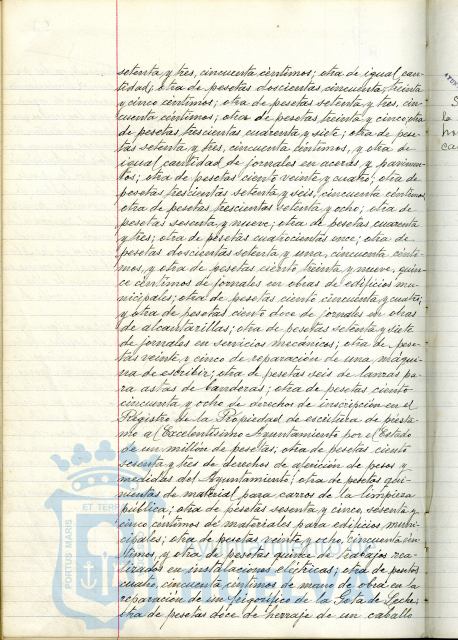 setenta y tres, cincuenta céntimos; otra de igual can-
tidad; otra de pesetas doscientas cincuenta, treinta
y cinco céntimos; otra de pesetas setenta y tres, cin-
cuenta céntimos; otra de pesetas treinta y cinco; otra
de pesetas trescientas cuarenta y siete; otra de pese-
tas setenta y tres, cincuenta céntimos, y otra de
igual cantidad de jornales en aceras y pavimen-
tos; otra de pesetas ciento veinte y cuatro; otra de
pesetas trescientas setenta y seis, cincuenta céntimos
otra de pesetas trescientas setenta y ocho; otra de
pesetas sesenta y nueve; otra de pesetas cuarenta
y tres; otra de pesetas cuatrocientas once; otra de
pesetas doscientas setenta y una, cincuenta cénti-
mos, y otra de pesetas ciento treinta y nueve, quin-
ce céntimos de jornales en obras de edificios mu-
nicipales; otra de pesetas ciento cincuenta y cuatro;
y otra de pesetas ciento doce de jornales en obras
de alcantarillas; otra de pesetas setenta y siete
de jornales en servicios mecánicos; otra de pese-
tas veinte y cinco de reparación de una máqui-
na de escribir; otra de pesetas seis de lanzas pa-
ra astas de banderas; otra de pesetas ciento
cincuenta y ocho de derechos de inscripción en el
Registro de la Propiedad de escritura de présta-
mo al Excelentísimo Ayuntamiento por el Estado
de un millón de pesetas; otra de pesetas ciento
sesenta y tres de derechos de afención de pesos y
medidas del Ayuntamiento; otra de pesetas qui-
nientas de material para carros de la limpieza
pública; otra de pesetas sesenta y cinco, sesenta y
cinco céntimos de materiales para edificios muni-
cipales; otra de pesetas veinte y ocho, cincuenta cén-
timos, y otra de pesetas quince de trabajos rea-
lizados en instalaciones eléctricas; otra de pesetas
cuatro, cincuenta céntimos de mano de obra en la
reparación de un frigorífico de la Gota de Leche;
otra de pesetas doce de herraje de un caballo
ET TERR
PORTUS MARIS
AYUN
S
la